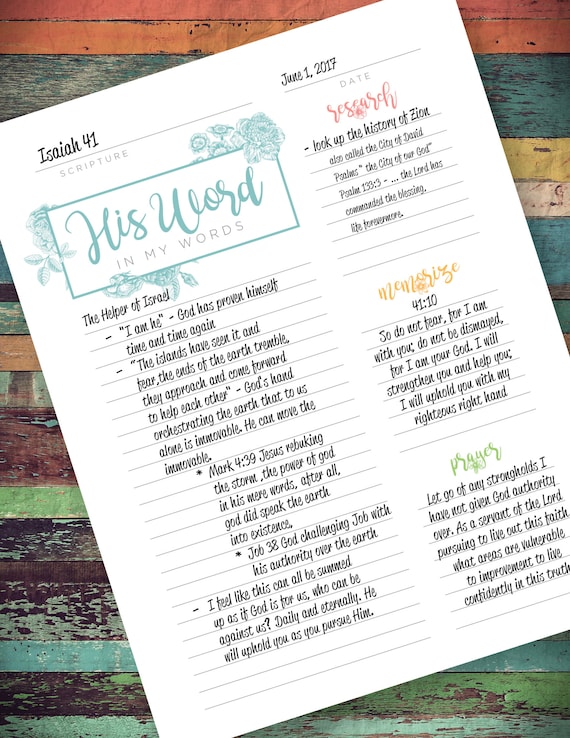 June 1, 2017
DATE
Isaiah 41
SCRIPTURE
His Word
IN MY WORDS
The Helper of Israel
- "I am he" - God has proven himself
time and time again
- "The islands have seen it and
fear,the ends of the earth tremble.
they approach and come forward
to help each other" - God's hand
orchestrating the earth that to us
alone is immovable. He can move the
immovable.
* Mark 4:39 Jesus rebuking
the storm ,the power of god
in his mere words, after all,
god did speak the earth
into existence.
* Job 38 God challenging Job with
his authority over the earth
- I feel like this can all be summed
up as if God is for us, who can be
against us? Daily and eternally. He
will uphold you as you pursue Him.
research
- look up the history of Zion
also called the City of David
Psalms" the City of our God"
Psalm 133:3 - ... the Lord has
commanded the blessing,
life forevermore.
memorize
41:10
So do not fear, for I am
with you; do not be dismayed,
for I am your God. I will
strengthen you and help you;
I will uphold you with my
righteous right hand
prayer
Let go of any strongholds I
have not given God authority
over. As a servant of the Lord
pursuing to live out this faith
what areas are vulnerable
to improvement to live
confidently in this truth